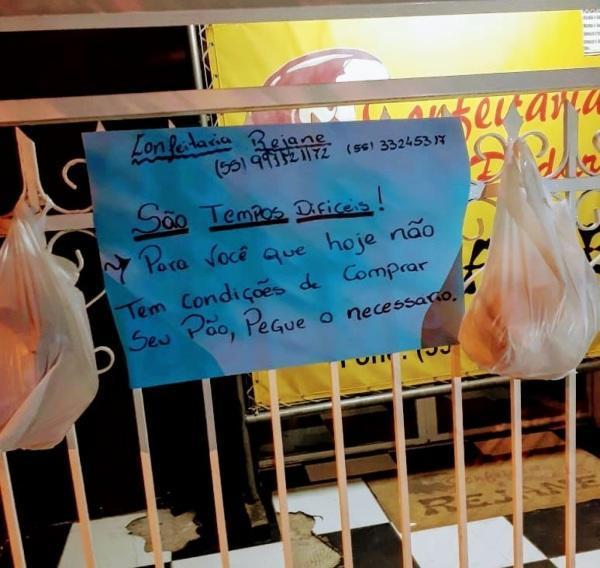 Confeitaria Rejane
(55) 991521172 (55) 33245317
São Tempos Dificeis!
Para Você que hoje não
Tem condições de Comprar
Seu Pão, Pegue o necessario.
Confeitaria
Fone: (55
REJANE